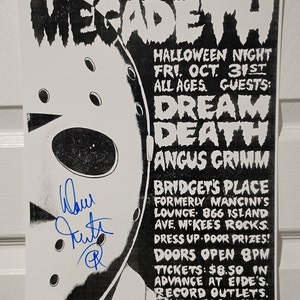 MEGADETH
HALLOWEEN NIGHT
FRI. OCT. 31ST
ALL AGES. GUESTS:
DREAM
DEATH
ANGUS GRIMM
BRIDGET'S PLACE
FORMERLY MANCINI'S
LOUNGE· 866 ISLAND
AVE. MCKEES ROCKS.
DRESS UP·DOOR PRIZES!
DOORS OPEN 8PM
TICKETS: $8.50 IN
ADVANCE AT EIDE'S,
RECORD OUTLETS